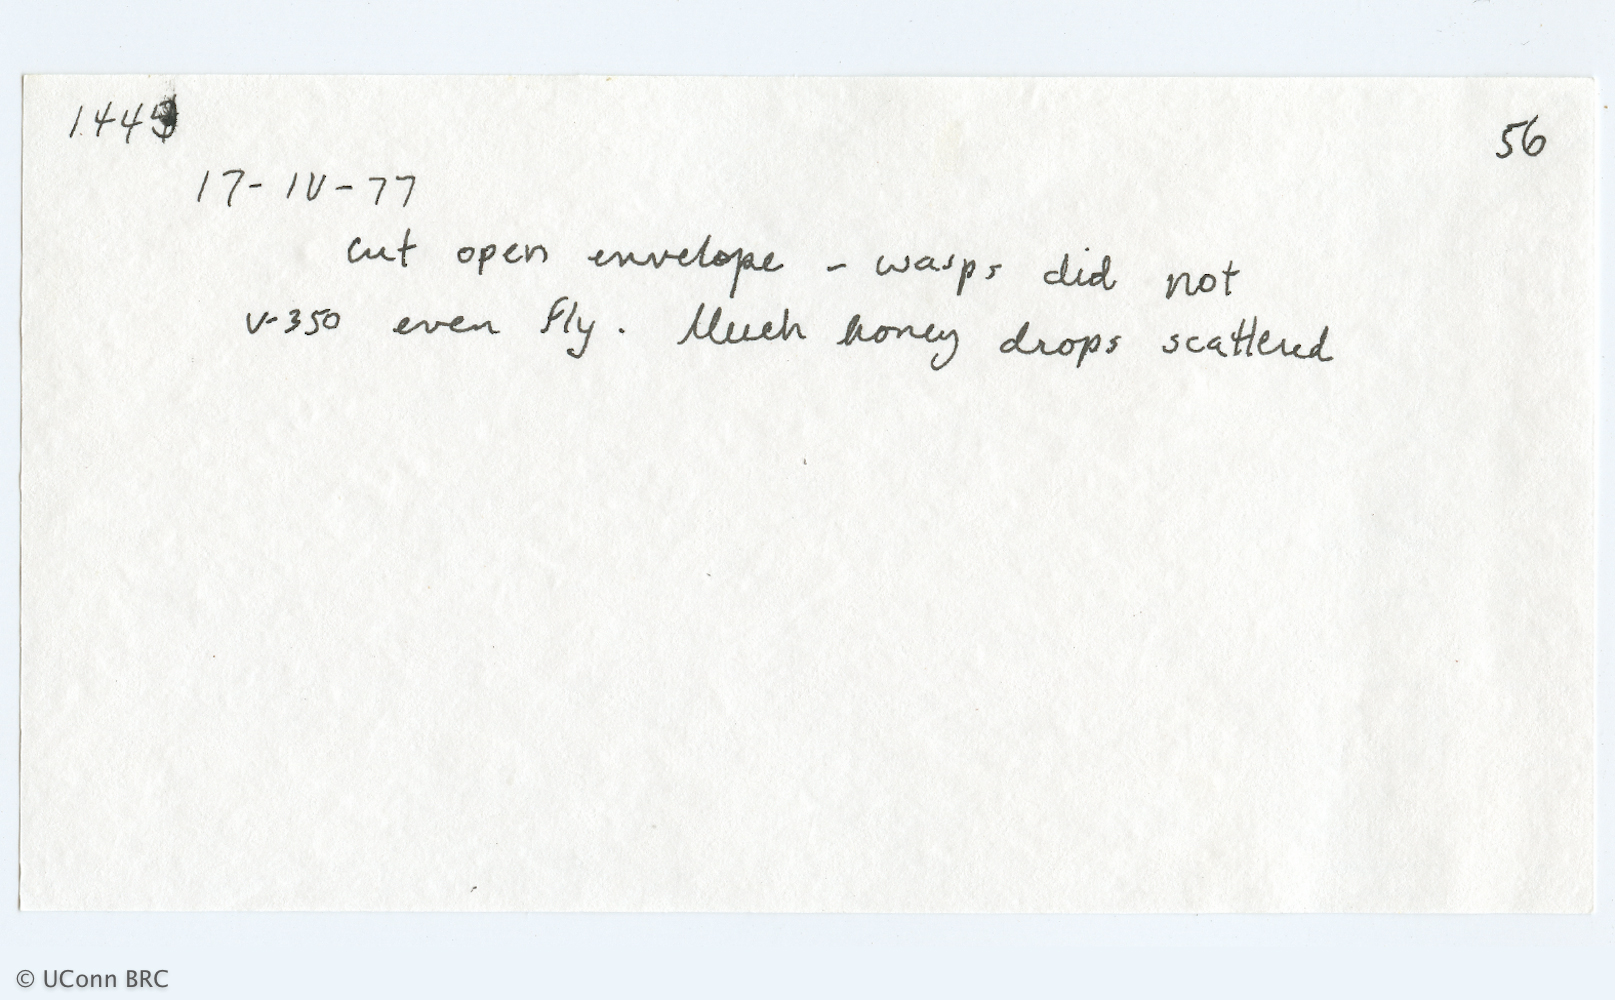 1445 56
17-IV-77
cut open envelope - wasps did not
V-350 even fly. Much honey drops scattered
© UConn BRC